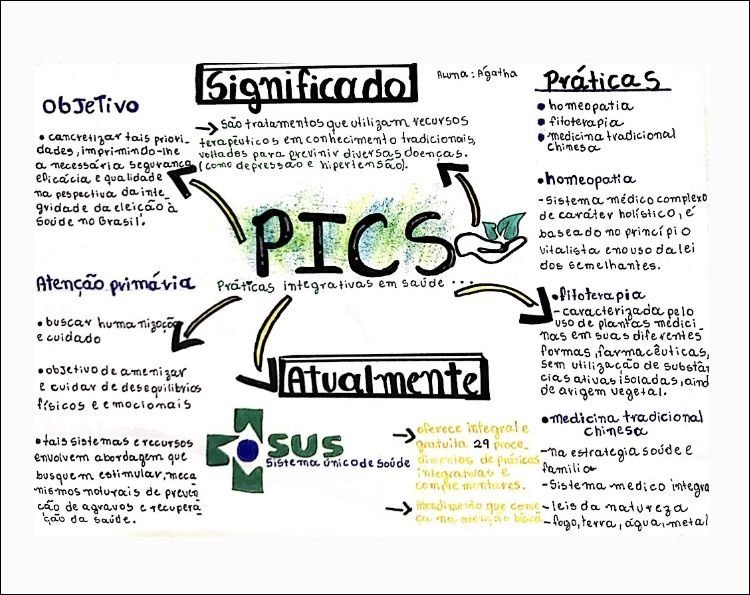 Significado
Aluna: Ágatha
→ São tratamentos que utilizam recursos
terapêuticos em conhecimento tradicionais,
voltados para previnir diversas doenças.
(como depressão e hipertensão).
Objetivo
• cancretizar tais priori-
dades, imprimindo-lhe
a necessária segurança
eficácia e qualidade
na pespectiva da inte_
gridade da eleição à
Saúde no Brasil.
PICS
Práticas integrativas em saúde ...
Atenção primária
• buscar humanização
e cuidado
• objetivo de amenizar
e cuidar de desequilíbrios
físicos e emocionais
• tais sistemas e recursos
envolvem abordagem que
busquem estimular, meca
nismos naturais de preven
ção de agravos e recupera_
ção da saúde.
Atualmente
SUS
Sistema único de Saúde
→ oferece integral e
gratuita 29 proce_
dimentos de práticas
integrativas e
complementares.
→ Atendimento que come
çu na atenção básica
Práticas
• homeopatia
• fitoterapia
• medicina tradicional
chinesa
• homeopatia
- Sistema médico complexo
de caráter holístico, é
baseado no princípio
vitalista e no uso da lei
dos semelhantes.
• fitoterapia
- caracterizada pelo
uso de plantas medici_
nas em suas diferentes
formas, farmacêuticas,
sem utilização de substân
cias ativas isoladas, aind
de origem vegetal.
• medicina tradicional
chinesa
- na estratégia saúde e
família
- Sistema médico integra
- leis da natureza
- fogo, terra, água, metal